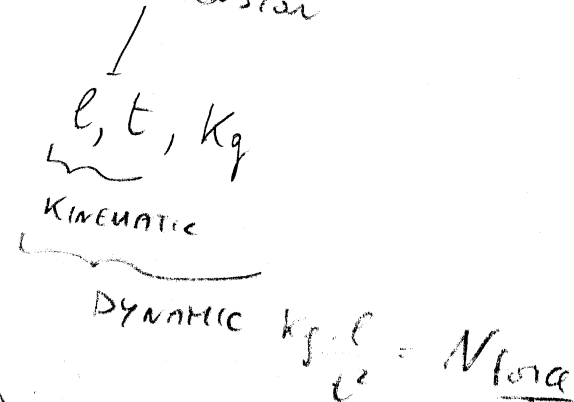 l, t, Kg
KINEMATIC
DYNAMIC Kg·l/t² = N force